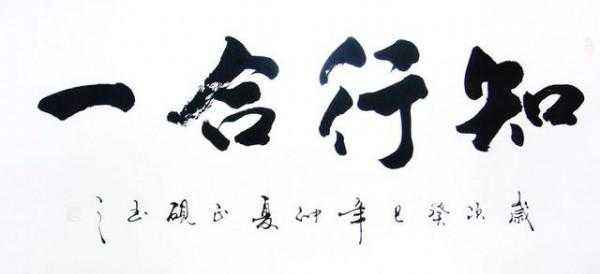 知行合一
歲次癸巳年仲夏正硯书之